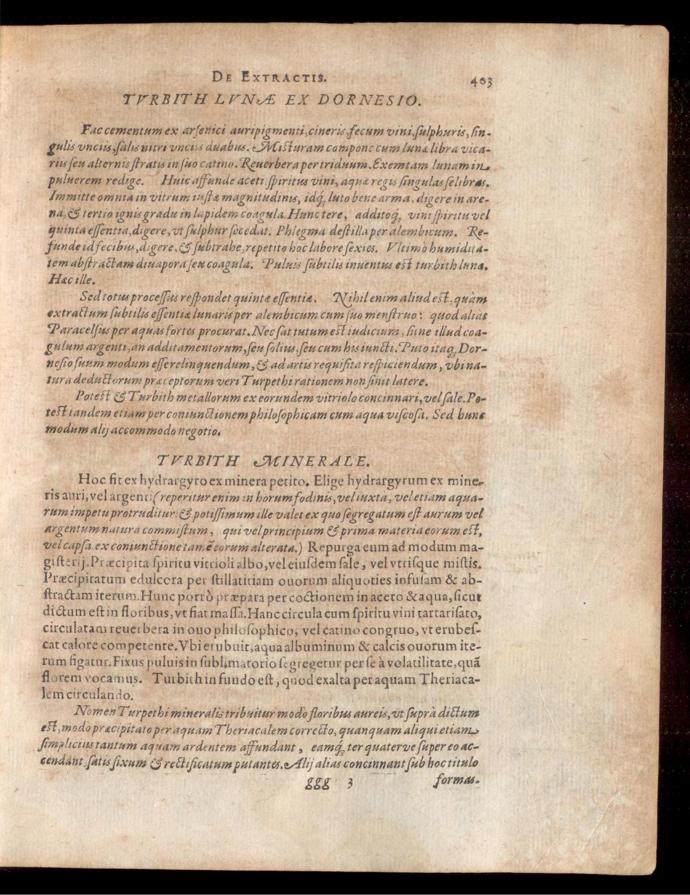 DE EXTRACTIS. 403
TVRBITH LVNÆ EX DORNESIO.
Fac cementum ex arsenici auripigmenti, cineris, fecum vini, sulphuris, sin-
gulis vnciis, salis nitri vnciis duabus. Misturam compone cum lunæ libra vica-
riis seu alternis stratis in suo catino. Reuerbera per triduum. Exemtam lunam in
puluerem redige. Huic affunde aceti spiritus vini, aquæ regis singulas selibras.
Immitte omnia in vitrum iustæ magnitudinis, idq́, luto bene arma, digere in are-
na, & tertio ignis gradu in lapidem coagula. Hunc tere, additoq́, vini spiritu vel
quinta essentia, digere, vt sulphur secedat. Phlegma destilla per alembicum. Re-
funde id fecibus, digere, & subtrahe, repetito hoc labore sexies. Vltimò humidita-
tem abstractam diuapora seu coagula. Puluis subtilis inuentus est turbith lunæ.
Hæc ille.
Sed totus processus respondet quintæ essentiæ. Nihil enim aliud est, quàm
extractum subtilis essentiæ lunaris per alembicum cum suo menstruo: quod alias
Paracelsus per aquas fortes procurat. Nec sat tutum est iudicium, sitne illud coa-
gulum argenti, an additamentorum, seu solius, seu cum his iuncti. Puto itaq́, Dor-
nesio suum modum esse relinquendum, & ad artis requisita respiciendum, vbi na-
tura deductorum præceptorum veri Turpethi rationem non sinit latere.
Potest & Turbith metallorum ex eorundem vitriolo concinnari, vel sale. Po-
test tandem etiam per coniunctionem philosophicam cum aqua viscosa. Sed hunc
modum alij accommodo negotio.
TVRBITH MINERALE.
Hoc fit ex hydrargyro ex minera petito. Elige hydrargyrum ex mine-
ris auri, vel argenti (reperitur enim in horum fodinis, vel iuxta, vel etiam aqua-
rum impetu protruditur: & potissimum ille valet ex quo segregatum est aurum vel
argentum natura commistum, qui vel principium & prima materia eorum est,
vel capsa ex coniunctione tamē eorum alterata.) Repurga eum ad modum ma-
gisterij. Præcipita spiritu vitrioli albo, vel eiusdem sale, vel vtrisque mistis.
Præcipitatum edulcera per stillatitiam ouorum aliquoties infusam & ab-
stractam iterum. Hunc porrò præpara per coctionem in aceto & aqua, sicut
dictum est in floribus, vt fiat massa. Hanc circula cum spiritu vini tartarisato,
circulatam reuerbera in ouo philosophico, vel catino congruo, vt erubes-
cat calore competente. Vbi erubuit, aqua albuminum & calcis ouorum ite-
rum figatur. Fixus puluis in sublimatorio segregetur per se à volatilitate, quā
florem vocamus. Turbith in fundo est, quod exalta per aquam Theriaca-
lem circulando.
Nomen Turpethi mineralis tribuitur modò floribus aureis, vt suprà dictum
est, modo præcipitato per aquam Theriacalem correcto, quanquam aliqui etiam
simplicius tantum aquam ardentem affundant, eamq́, ter quaterve super eo ac-
cendant, satis fixum & rectificatum putantes. Alij alias concinnant sub hoc titulo
ggg 3 formas.